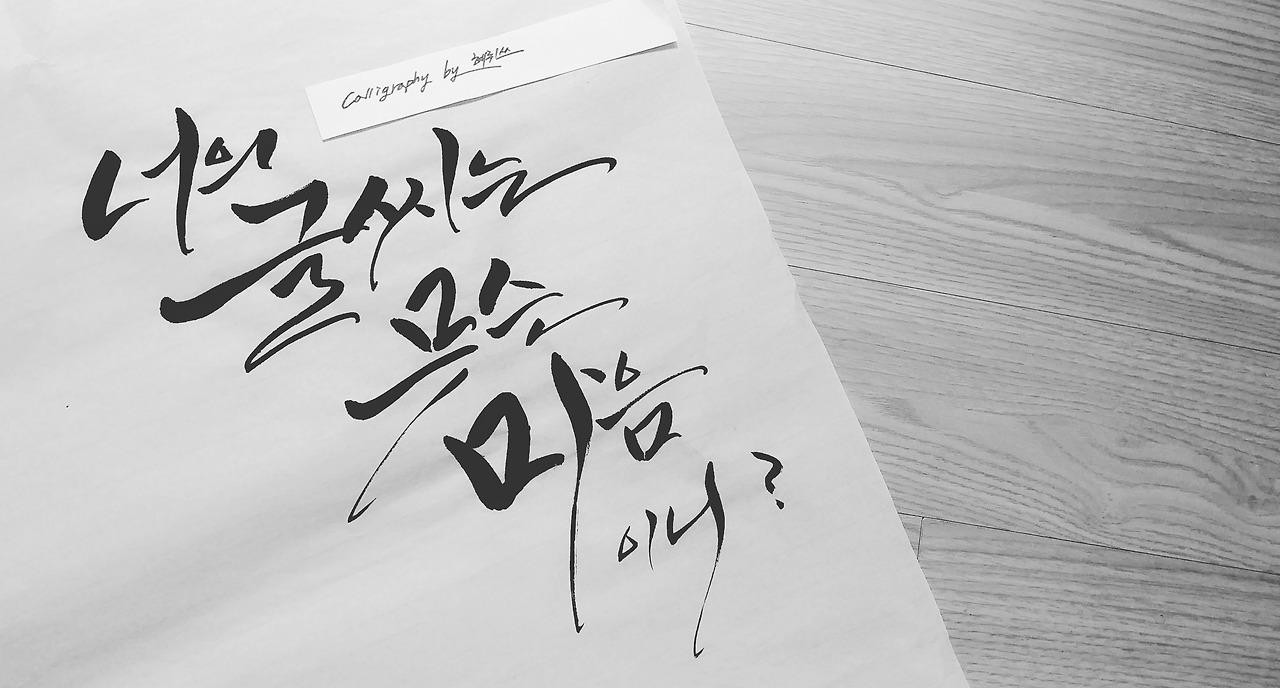 Calligraphy by
너의
글씨는
무슨
마음
이니?